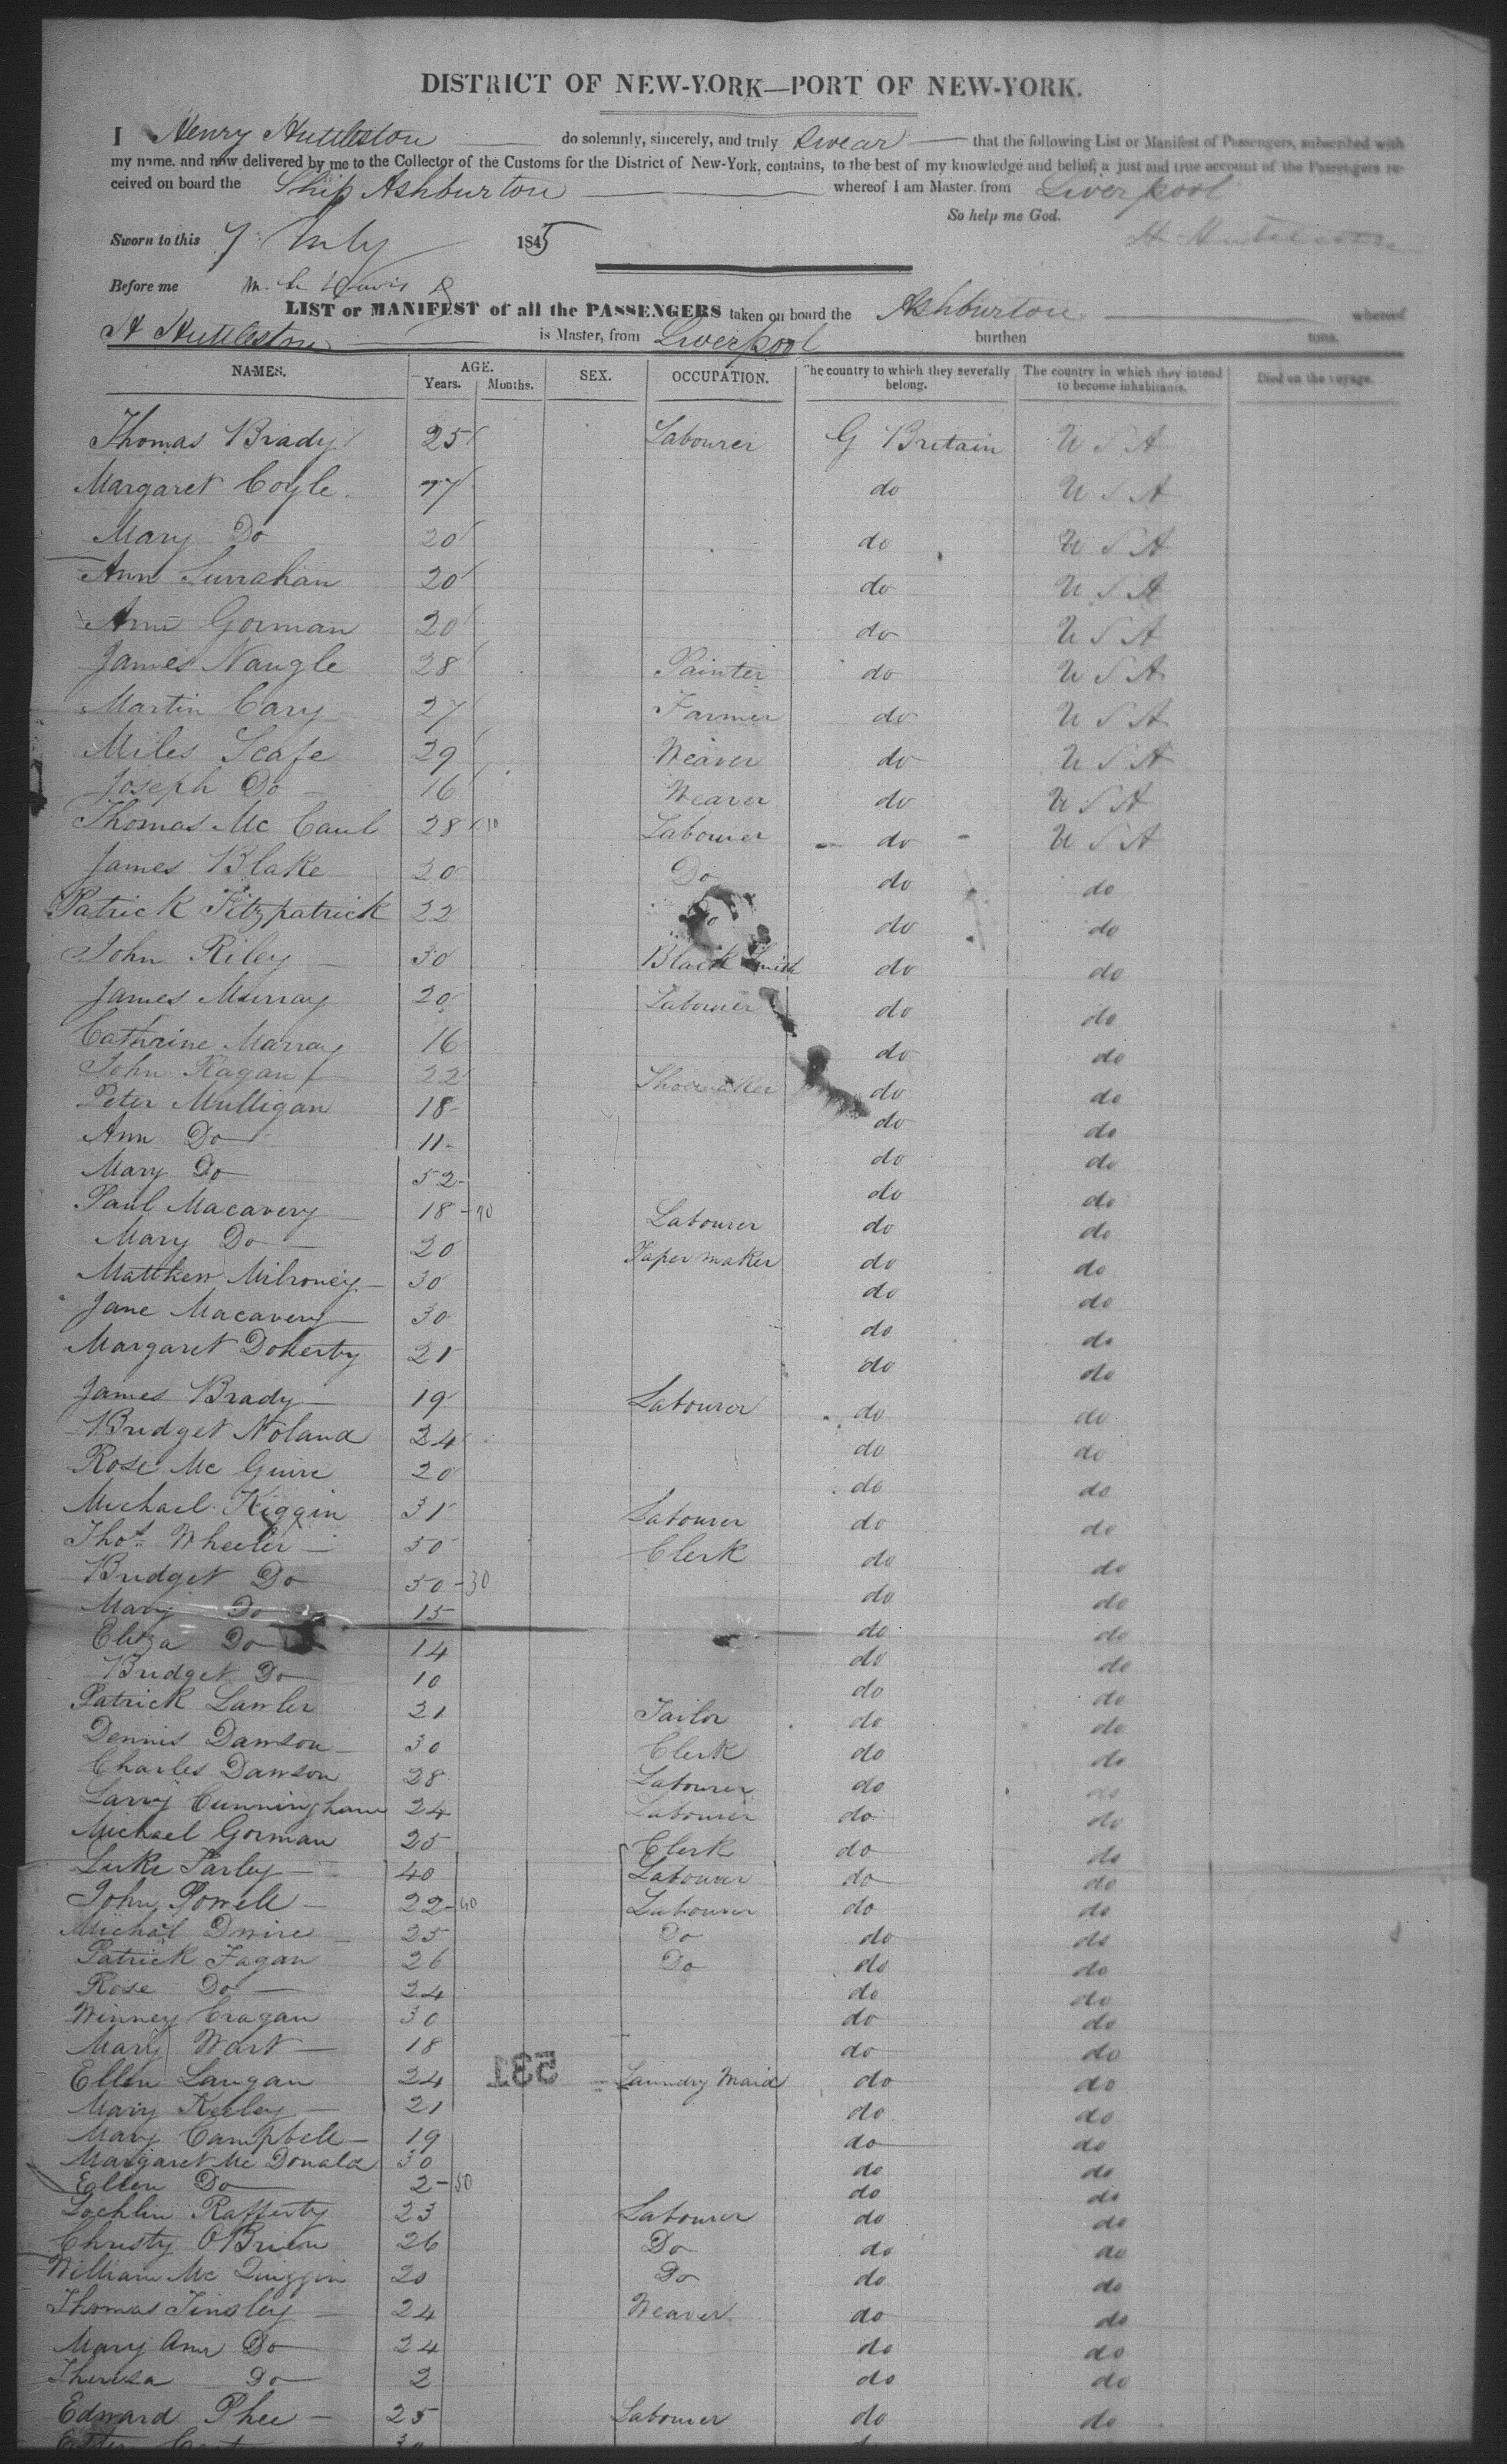 DISTRICT OF NEW-YORK—PORT OF NEW-YORK.
I Henry Huttleston do solemnly, sincerely, and truly swear that the following List or Manifest of Passengers, subscribed with
my name, and now delivered by me to the Collector of the Customs for the District of New-York, contains, to the best of my knowledge and belief, a just and true account of the Passengers re-
ceived on board the Ship Ashburton whereof I am Master, from Liverpool
So help me God.
Sworn to this 7 July 1845 H Huttleston
Before me
LIST or MANIFEST of all the PASSENGERS taken on board the Ashburton whereof
H Huttleston is Master, from Liverpool burthen tons.
NAMES. AGE. Years. Months. SEX. OCCUPATION. The country to which they severally belong. The country in which they intend to become inhabitants. Died on the voyage.
Thomas Brady 25 Labourer G Britain U S A
Margaret Coyle do U S A
Mary Do 20 do U S A
Ann 20 do U S A
Ann Gorman 20 do U S A
James Naugle 28 Painter do U S A
Martin Cary 27 Farmer do U S A
Miles Scafe 29 Weaver do U S A
Joseph Do 16 Weaver do U S A
Thomas Mc Caul 28 10 Labourer do U S A
James Blake 20 Do do do
Patrick Fitzpatrick 22 Do do do
John Riley 30 Black Smith do do
James Murray 20 Labourer do do
Cathrine Murray 16 do do
John Ragan 22 Shoemaker do do
Peter Mulligan 18 do do
Ann Do 11 do do
Mary Do 52 do do
Paul Macavery 18 - 20 Labourer do do
Mary Do 20 Paper maker do do
Matthew Milroney 30 do do
Jane Macavery 30 do do
Margaret Doherty 21 do do
James Brady 19 Labourer do do
Bridget Noland 24 do do
Rose Mc Guire 20 do do
Michael Kiggin 31 Labourer do do
Thos Wheeler 50 Clerk do do
Bridget Do 50 - 30 do do
Mary Do 15 do do
Eliza Do 14 do do
Bridget Do 10 do do
Patrick Lawler 21 Tailor do do
Dennis Dawson 30 Clerk do do
Charles Dawson 28 Labourer do do
Larry Cunningham 24 Labourer do do
Michael Gorman 25 Clerk do do
Luke Farley 40 Labourer do do
John Powell 22 - 40 Labourer do do
Michal Dwire 25 Do do do
Patrick Fagan 26 Do do do
Rose Do 24 do do
Winney Cragan 30 do do
Mary Wart 18 do do
531
Ellen Langan 24 Laundry Maid do do
Mary Keeley 21 do do
Mary Campbell 19 do do
Margaret Mc Donald 30 do do
Ellen Do 2 - 50 do do
Lochlin Rafferty 23 Labourer do do
Christy O'Brien 26 Do do do
William Mc Quiggin 20 Do do do
Thomas Tinsley 24 Weaver do do
Mary Ann Do 24 do do
Theresa Do 2 do do
Edward Phee 25 Labourer do do